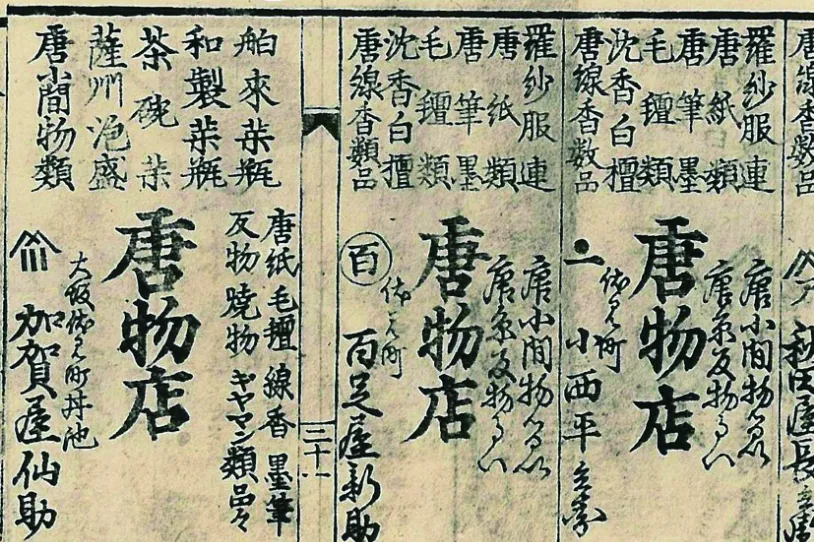 唐線香数品
羅紗服連
唐紙類
唐筆墨
毛氈類
沈香白檀
唐線香数品
唐小間物るい
唐糸反物るい
唐物店
伏見町
小西平兵衛
羅紗服連
唐紙類
唐筆墨
毛氈類
沈香白檀
唐線香類品
唐小間物るい
唐糸反物るい
唐物店
伏見町
百
百足屋新助
三十一
舶来茶瓶
和製茶瓶
茶碗茶
薩州泡盛
唐小間物類
唐紙毛氈線香墨筆
反物焼物キヤマン類品々
唐物店
大坂伏見町丼池
加賀屋仙助